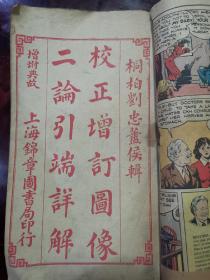 桐柏劉忠藎侯輯
校正增訂圖像
二論引端詳解
增坿典故
上海錦章圖書局印行